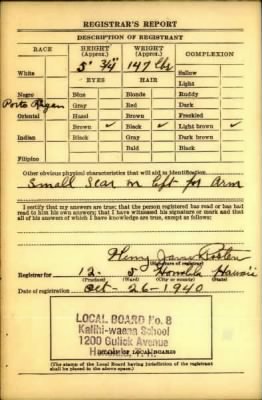 REGISTRAR'S REPORT
DESCRIPTION OF REGISTRANT
RACE HEIGHT (Approx.) WEIGHT (Approx.) COMPLEXION
White 5' 3¾" 147 lbs Sallow
EYES HAIR Light
Negro Blue Blonde Ruddy
Porto Rican Gray Red Dark
Oriental Hazel Brown Freckled
Brown ✓ Black ✓ Light brown ✓
Indian Black Gray Dark brown
Bald Black
Filipino
Other obvious physical characteristics that will aid in identification
Small Scar on left for Arm
I certify that my answers are true; that the person registered has read or has had
read to him his own answers; that I have witnessed his signature or mark and that
all of his answers of which I have knowledge are true, except as follows:
Henry
(Signature of registrar)
Registrar for 12 - 5 Honolulu Hawaii
(Precinct) (Ward) (City or county) (State)
Date of registration Oct - 26 - 1940
LOCAL BOARD No. 8
Kalihi-waena School
1200 Gulick Avenue
(STAMP OF LOCAL BOARD)
(The stamp of the Local Board having jurisdiction of the registrant
shall be placed in the above space.)